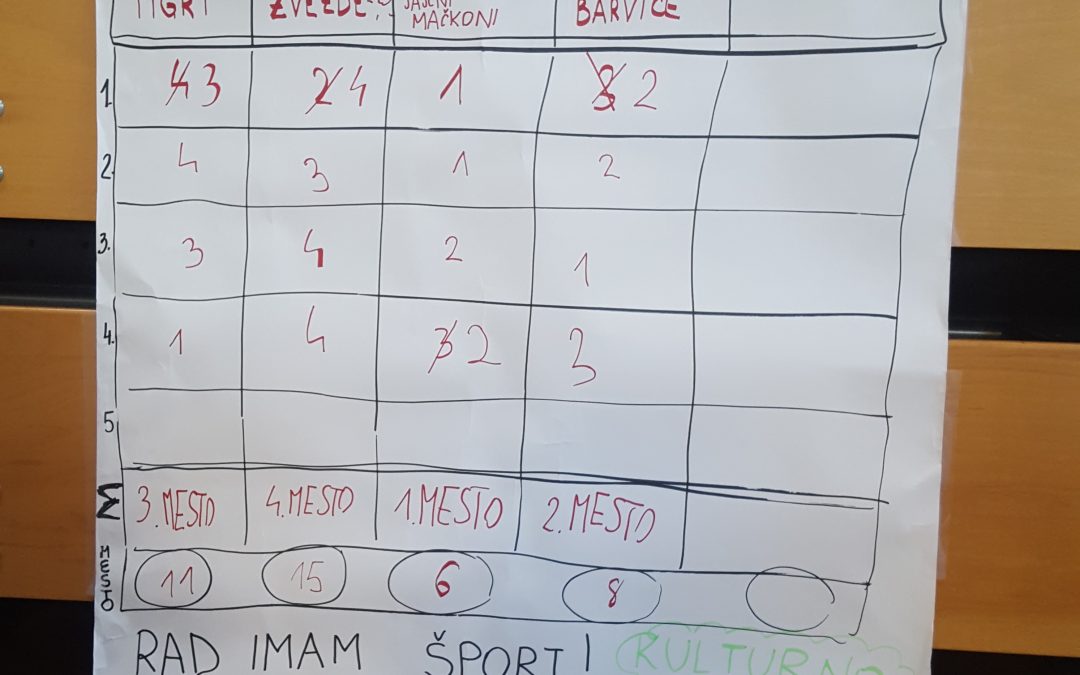 TIGRI ZVEZDE MAČKONI BARVICE
1. 4 3 2 4 1 3 2
2. 4 3 1 2
3. 3 4 2 1
4. 1 4 3 2 3
5
Σ 3. MESTO 4. MESTO 1. MESTO 2. MESTO
MESTO 11 15 6 8
RAD IMAM ŠPORT! KULTURNO